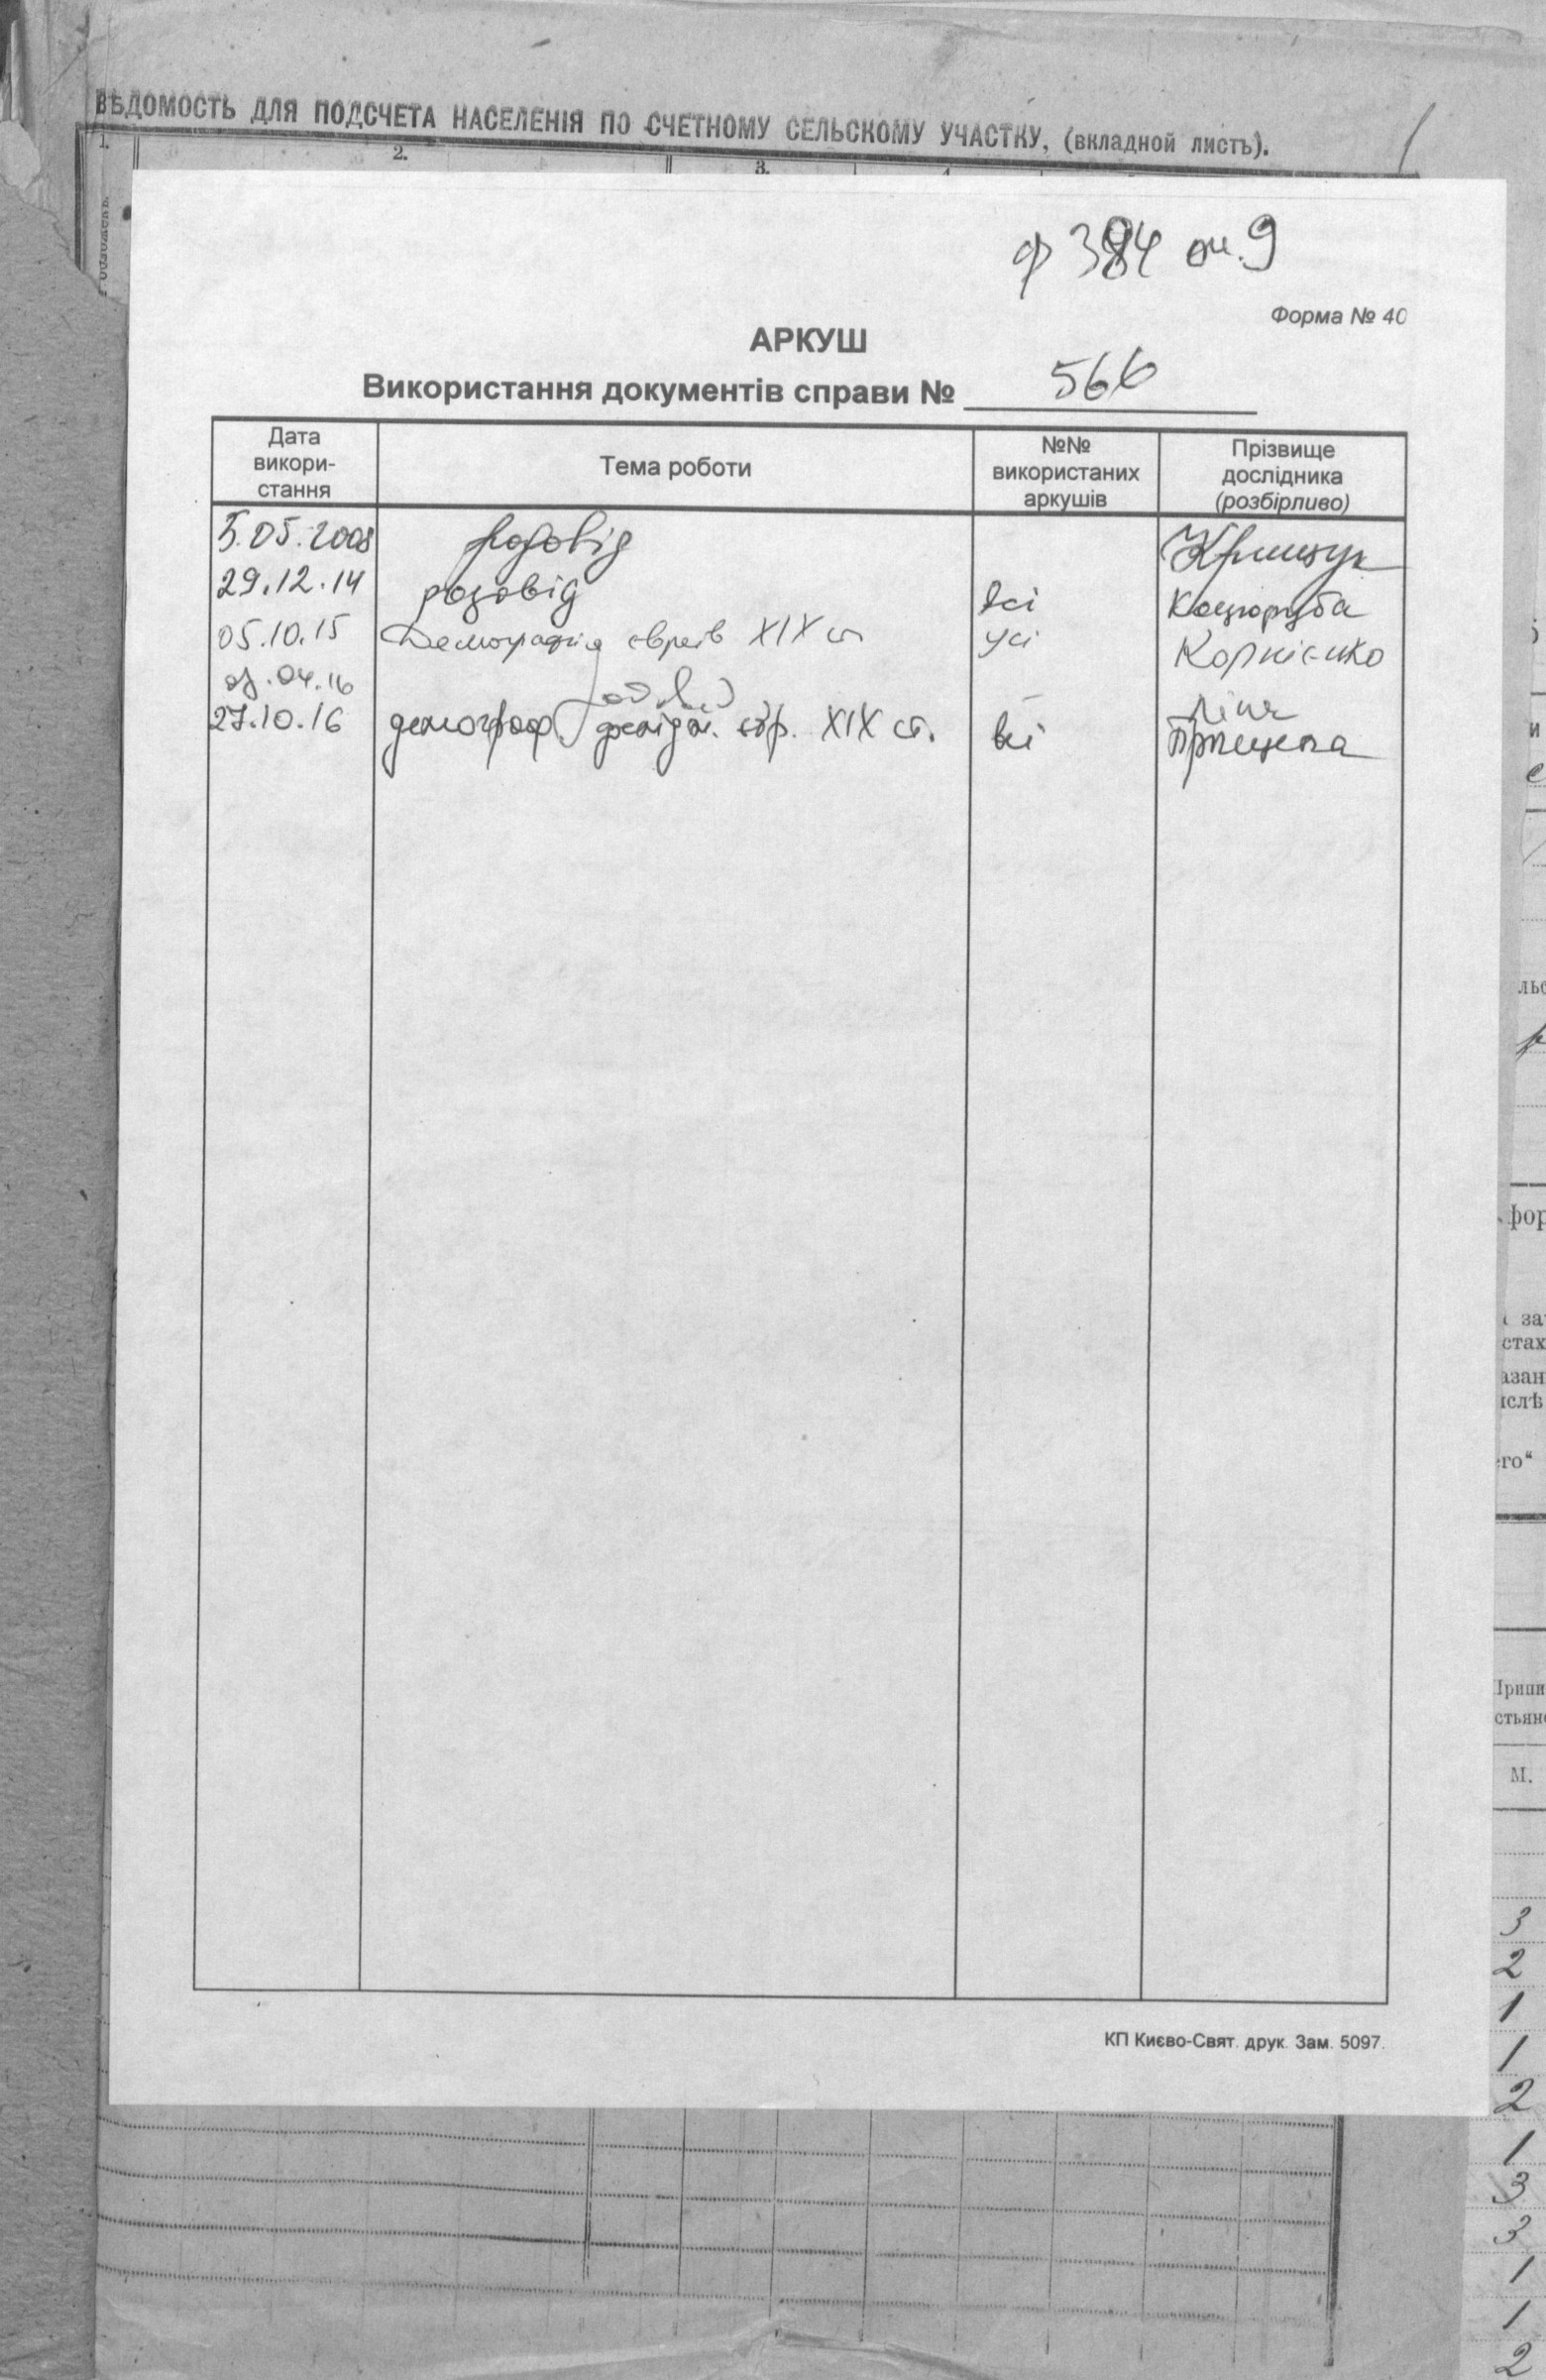 ВѢДОМОСТЬ ДЛЯ ПОДСЧЕТА НАСЕЛЕНІЯ ПО СЧЕТНОМУ СЕЛЬСКОМУ УЧАСТКУ, (вкладной листъ).
1. 2. 3.
ф 384 оп. 9
Форма № 40
АРКУШ
Використання документів справи № 566
Дата
викори-
стання
Тема роботи
№№
використаних
аркушів
Прізвище
дослідника
(розбірливо)
5.05.2008 родовід
29.12.14 родовід всі Коцюруба
05.10.15 Демографія євреїв XIX ст усі Корнієнко
04.16
27.10.16 демограф. євр. XIX ст. всі
КП Києво-Свят. друк. Зам. 5097.
льс
фор
за
стах
азан
ислѣ
его“
Припи
стьян
М.
3
2
1
1
2
1
3
3
1
1
2